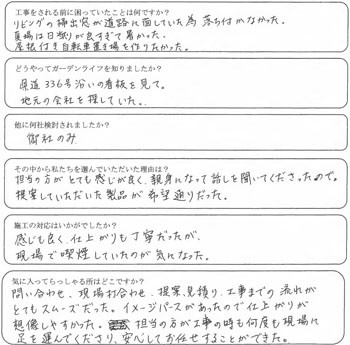 工事をされる前に困っていたことは何ですか?
リビングの掃出窓が道路に面していた為 落ち付かなかった。
真場は日照りが良すぎて暑かった。
屋根付き自転車置き場を作りたかった。
どうやってガーデンライフを知りましたか?
県道336号沿いの看板を見て。
地元の会社を探していた。
他に何社検討されましたか?
御社のみ
その中から私たちを選んでいただいた理由は?
担当の方がとても感じが良く、親身になって話しを聞いてくださったので。
提案していただいた製品が希望通りだった。
施工の対応はいかがでしたか?
感じも良く、仕上がりも丁寧だったが、
現場で喫煙していたのが気になった。
気に入ってらっしゃる所はどこですか?
問い合わせ、現場打合わせ、提案、見積り、工事までの流れが
とてもスムーズだった。イメージパースがあったので仕上がりが
想像しやすかった。担当の方が工事の時も何度も現場に
足を運んでくださり、安心してお任せすることができた。